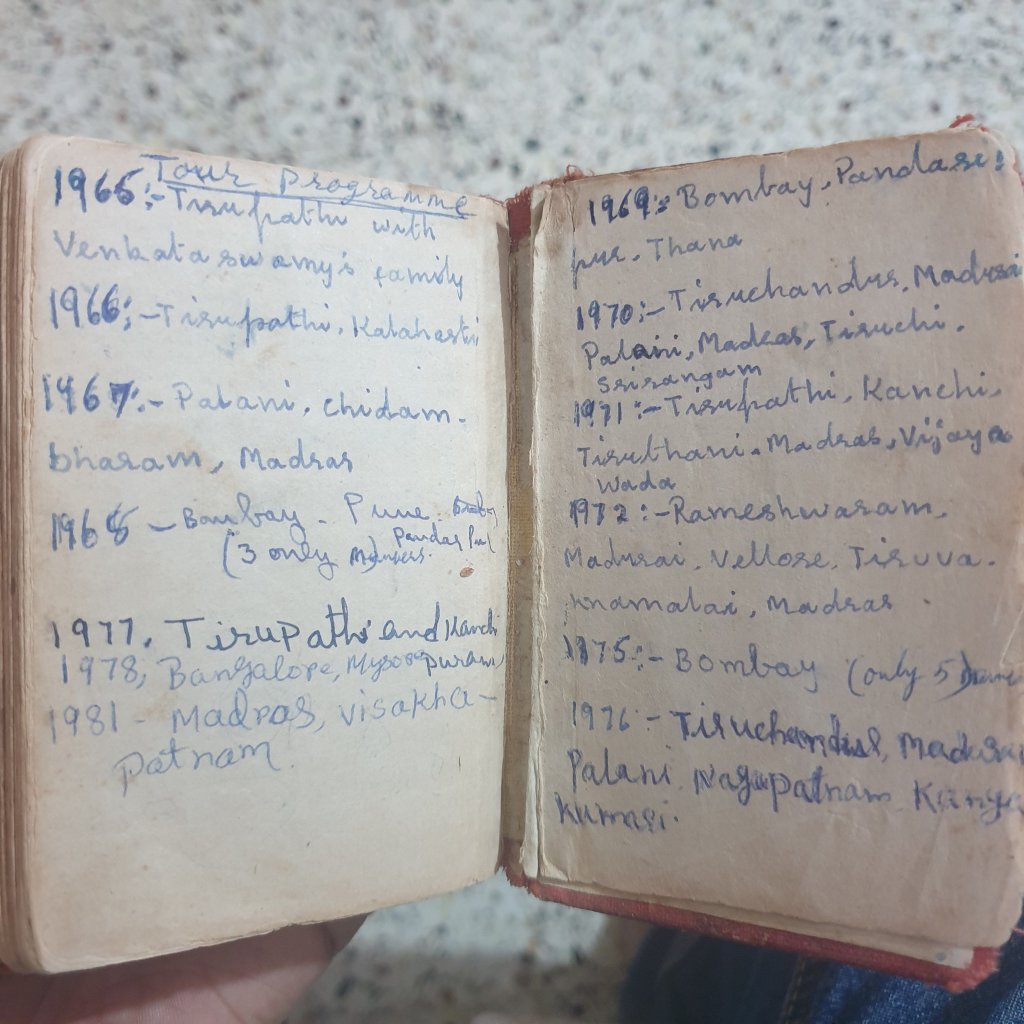 Tour Programme
1965:- Tirupathi with
Venkata swamy's family
1966:- Tirupathi, Kalahasti
1967:- Palani, Chidam-
bharam, Madras
1968 - Bombay. Pune.
Pandar Pur
(3 only Members)
1977, Tirupathi and Kanchi
1978, Bangalore, Mysore puram,
1981 - Madras, Visakha-
patnam.
1969:- Bombay, Pandari
pur, Thana
1970:- Tiruchandur, Madurai
Palani, Madras, Tiruchi.
Srirangam
1971:- Tirupathi, Kanchi,
Tiruthani. Madras, Vijaya
wada
1972:- Rameshwaram.
Madurai. Vellore. Tiruva.
nnamalai, Madras.
1975:- Bombay (only 5)
1976:- Tiruchandur, Madurai
Palani Nagupatnam Kanya
Kumari.